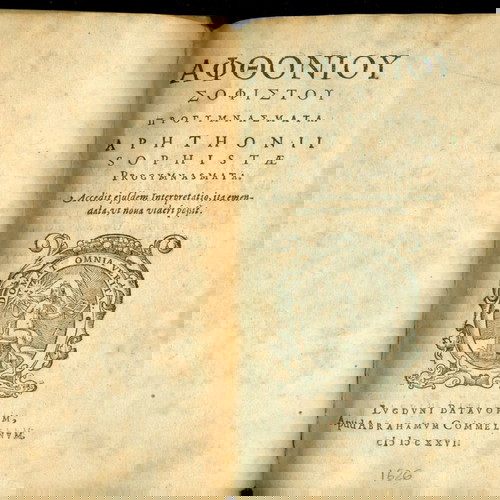 ΑΦΘΟΝΙΟΥ
ΣΟΦΙΣΤΟΥ
ΠΡΟΓΥΜΝΑΣΜΑΤΑ
APHTHONII
SOPHISTÆ
PROGYMNASMATA.
Accedit ejusdem Interpretatio, ita emen-
data, ut nova videri possit.
OMNIA
LVGDVNI BATAVOR
Apud ABRAHAMVM COMMEL
cIↄ Iↄ cXXVI.
1626